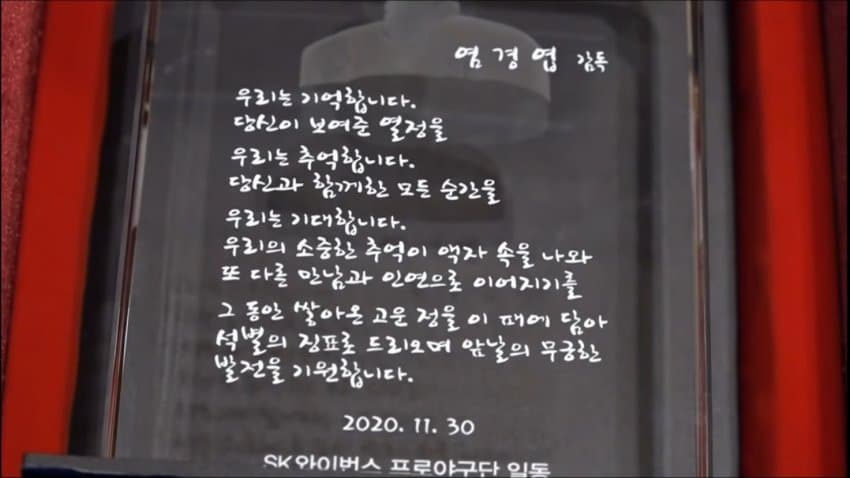 염경엽 감독
우리는 기억합니다.
당신이 보여준 열정을
우리는 추억합니다.
당신과 함께한 모든 순간을
우리는 기대합니다.
우리의 소중한 추억이 액자 속을 나와
또 다른 만남과 인연으로 이어지기를
그 동안 쌀아온 고운 정을 이 패에 담아
석별의 징표로 드리오며 앞날의 무궁한
발전을 기원합니다.
2020. 11. 30
SK와이번스 프로야구단 일동